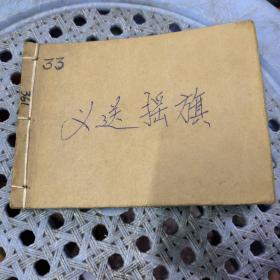 33
361
义送摇旗